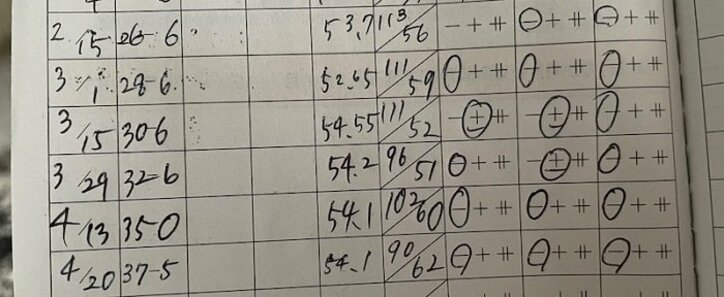 2/15 26-6 53.7 113/56 - + ⧺ ⊖ + ⧺ ⊖ + ⧺
3/1 28-6 52.65 111/59 ⊖ + ⧺ ⊖ + ⧺ ⊖ + ⧺
3/15 30-6 54.55 111/52 - ⊕ ⧺ - ⊕ ⧺ ⊖ + ⧺
3/29 32-6 54.2 96/51 ⊖ + ⧺ - ⊕ ⧺ ⊖ + ⧺
4/13 35-0 54.1 102/60 ⊖ + ⧺ ⊖ + ⧺ ⊖ + ⧺
4/20 37-5 54.1 90/62 ⊖ + ⧺ ⊖ + ⧺ ⊖ + ⧺